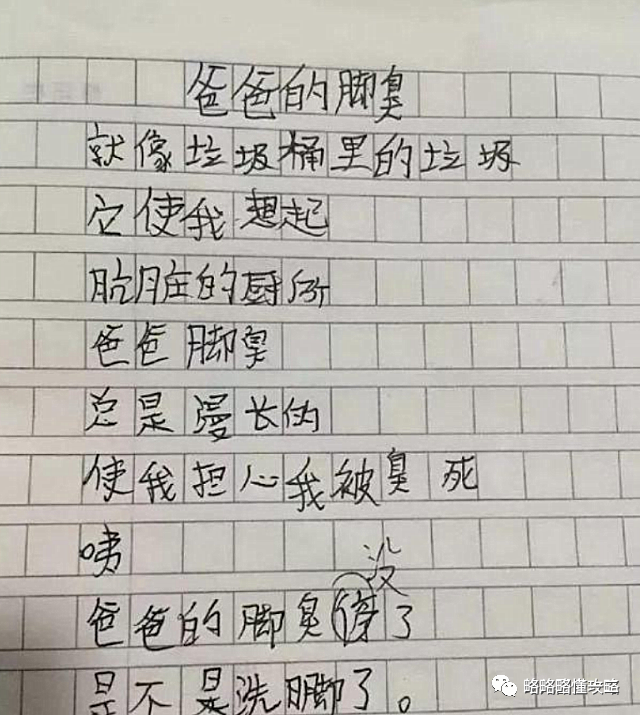 爸爸的脚臭
就像垃圾桶里的垃圾
它使我想起
肮脏的厨所
爸爸脚臭
总是漫长的
使我担心我被臭死
咦
没
爸爸的脚臭停了
是不是洗脚了。
略略略懂攻略